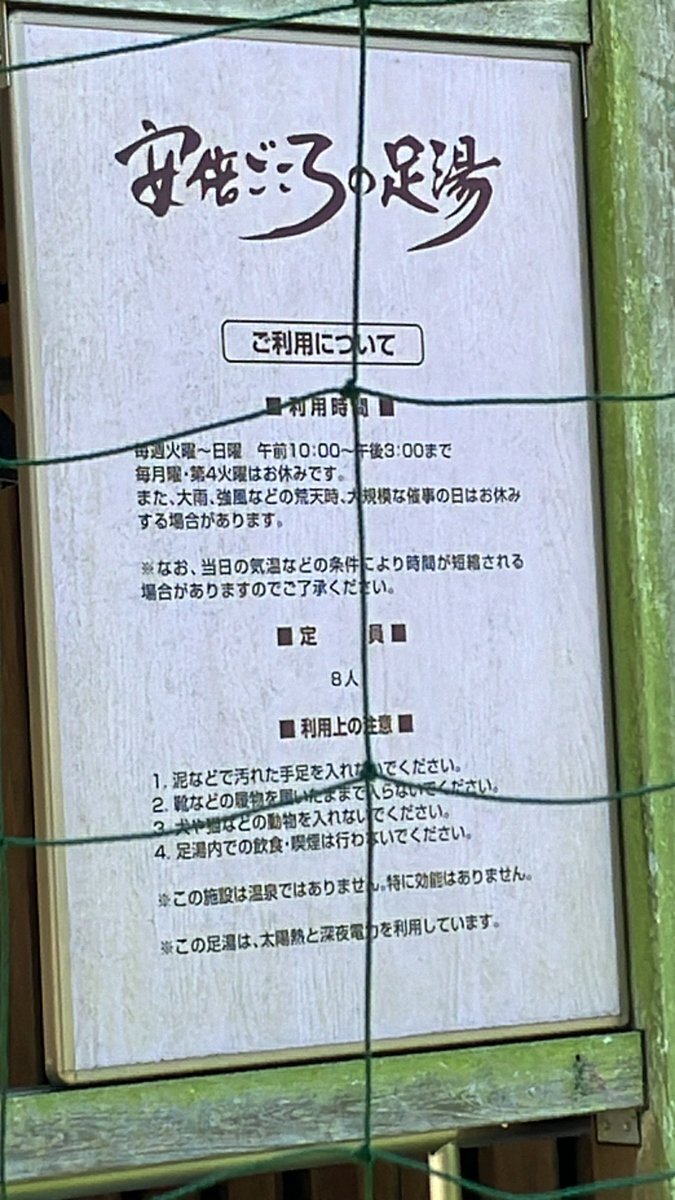 安倍ごころの足湯
ご利用について
■利用時間■
毎週火曜〜日曜　午前10:00〜午後3:00まで
毎月曜・第4火曜はお休みです。
また、大雨、強風などの荒天時、大規模な催事の日はお休み
する場合があります。
※なお、当日の気温などの条件により時間が短縮される
場合がありますのでご了承ください。
■定　　員■
8人
■利用上の注意■
1. 泥などで汚れた手足を入れないでください。
2. 靴などの履物を履いたままで入らないでください。
3. 犬や猫などの動物を入れないでください。
4. 足湯内での飲食・喫煙は行わないでください。
※この施設は温泉ではありません。特に効能はありません。
※この足湯は、太陽熱と深夜電力を利用しています。